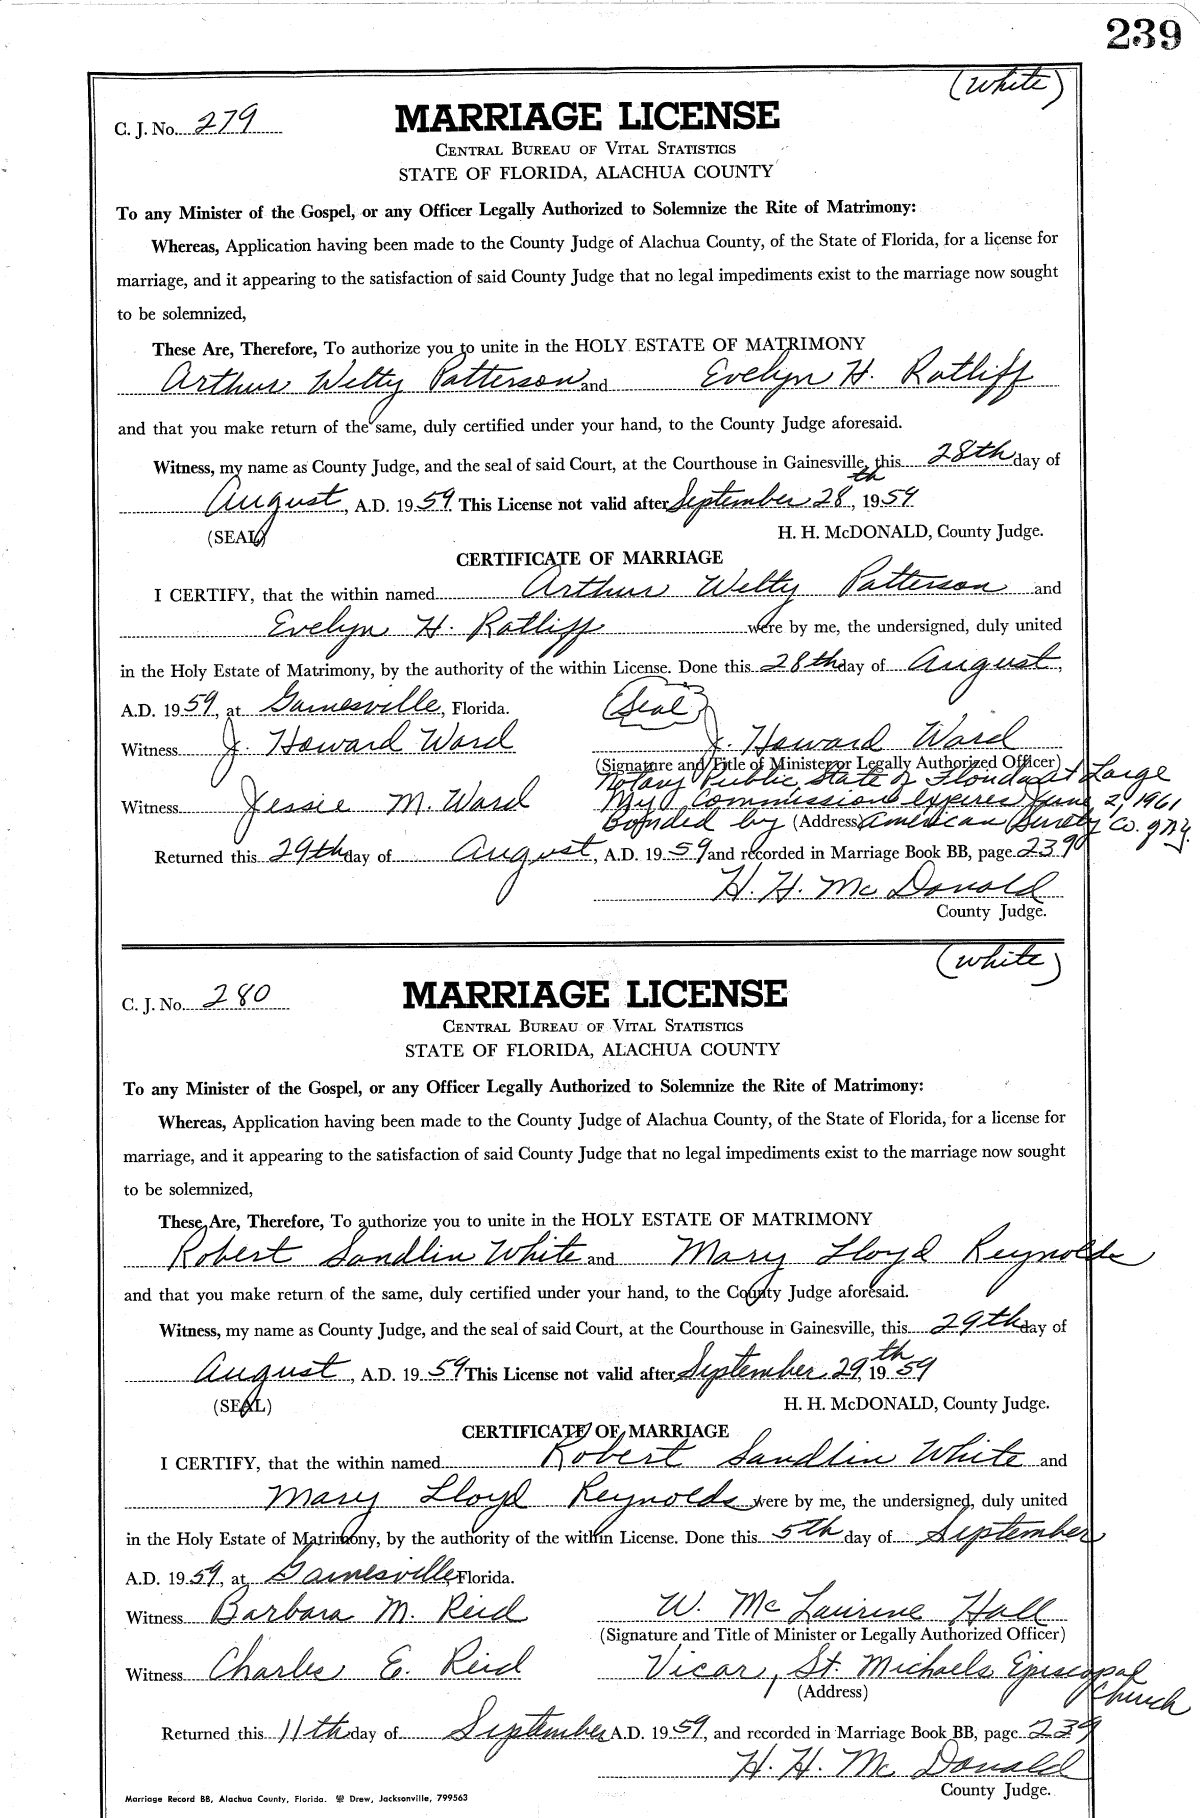 239
(White)
C. J. No. 279
MARRIAGE LICENSE
CENTRAL BUREAU OF VITAL STATISTICS
STATE OF FLORIDA, ALACHUA COUNTY
To any Minister of the Gospel, or any Officer Legally Authorized to Solemnize the Rite of Matrimony:
Whereas, Application having been made to the County Judge of Alachua County, of the State of Florida, for a license for
marriage, and it appearing to the satisfaction of said County Judge that no legal impediments exist to the marriage now sought
to be solemnized,
These Are, Therefore, To authorize you to unite in the HOLY ESTATE OF MATRIMONY
Arthur Welty Patterson and Evelyn H. Ratliff
and that you make return of the same, duly certified under your hand, to the County Judge aforesaid.
Witness, my name as County Judge, and the seal of said Court, at the Courthouse in Gainesville, this 28th day of
August, A.D. 1959. This License not valid after September 28th, 1959
(SEAL) H. H. McDONALD, County Judge.
CERTIFICATE OF MARRIAGE
I CERTIFY, that the within named Arthur Welty Patterson and
Evelyn H. Ratliff were by me, the undersigned, duly united
in the Holy Estate of Matrimony, by the authority of the within License. Done this 28th day of August,
A.D. 1959, at Gainesville, Florida. (Seal)
Witness J. Howard Ward J. Howard Ward
(Signature and Title of Minister or Legally Authorized Officer)
Notary Public, State of Florida at Large
Witness Jessie M. Ward My Commission expires June 2, 1961
Bonded by (Address) American Surety Co. of N.Y.
Returned this 29th day of August, A.D. 1959 and recorded in Marriage Book BB, page 239
H. H. McDonald
County Judge.
(White)
C. J. No. 280
MARRIAGE LICENSE
CENTRAL BUREAU OF VITAL STATISTICS
STATE OF FLORIDA, ALACHUA COUNTY
To any Minister of the Gospel, or any Officer Legally Authorized to Solemnize the Rite of Matrimony:
Whereas, Application having been made to the County Judge of Alachua County, of the State of Florida, for a license for
marriage, and it appearing to the satisfaction of said County Judge that no legal impediments exist to the marriage now sought
to be solemnized,
These Are, Therefore, To authorize you to unite in the HOLY ESTATE OF MATRIMONY
Robert Sandlin White and Mary Lloyd Reynolds
and that you make return of the same, duly certified under your hand, to the County Judge aforesaid.
Witness, my name as County Judge, and the seal of said Court, at the Courthouse in Gainesville, this 29th day of
August, A.D. 1959 This License not valid after September 29th 1959
(SEAL) H. H. McDONALD, County Judge.
CERTIFICATE OF MARRIAGE
I CERTIFY, that the within named Robert Sandlin White and
Mary Lloyd Reynolds were by me, the undersigned, duly united
in the Holy Estate of Matrimony, by the authority of the within License. Done this 5th day of September
A.D. 1959, at Gainesville, Florida.
Witness Barbara M. Reid W. McLaurine Hall
(Signature and Title of Minister or Legally Authorized Officer)
Witness Charles E. Reid Vicar, St. Michaels Episcopal Church
(Address)
Returned this 11th day of September A.D. 1959, and recorded in Marriage Book BB, page 239
H. H. McDonald
County Judge.
Marriage Record BB, Alachua County, Florida. Drew, Jacksonville, 799563